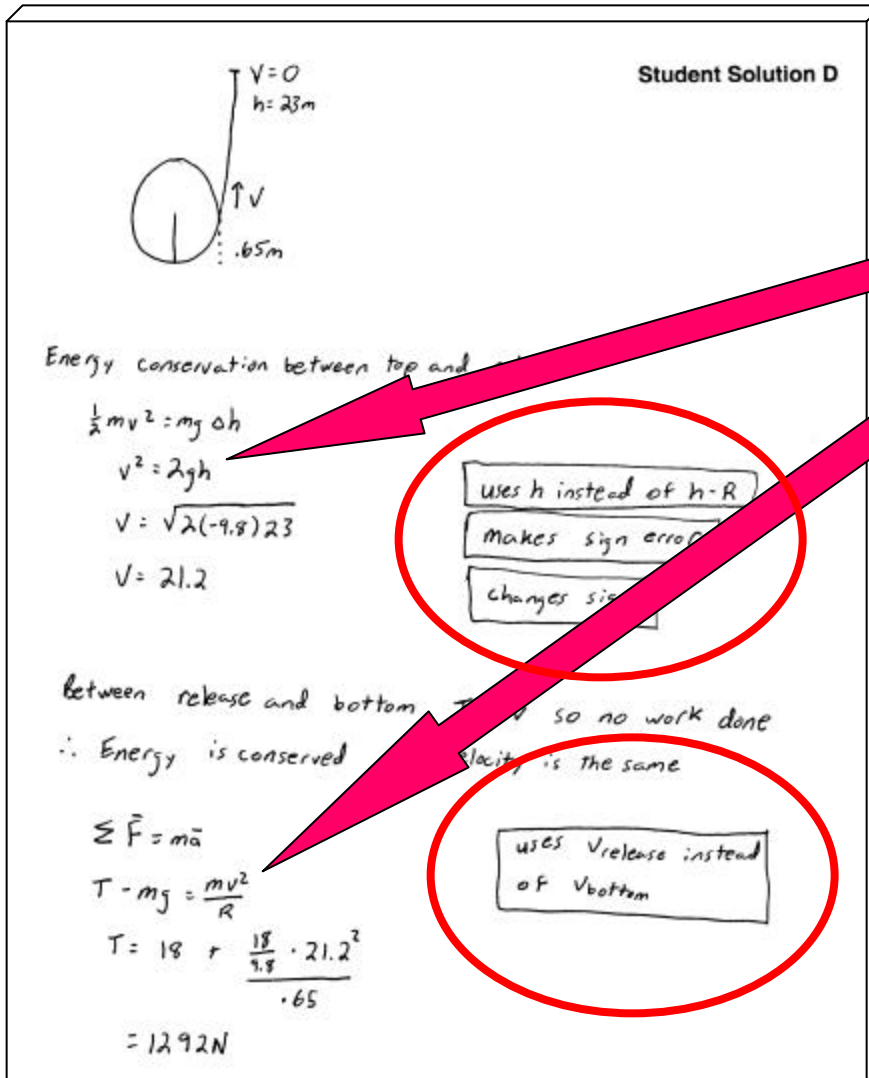 Student Solution D
V=0
h=23m
↑V
.65m
Energy conservation between top and
½mv²=mg∆h
v²=2gh
V=√2(-9.8)23
V=21.2
uses h instead of h-R
makes sign error
changes
Between release and bottom so no work done
∴ Energy is conserved is the same
Σ F̄=mā
T-mg=mv²/R
T= 18 + (18/9.8 · 21.2²)/.65
=1292N
uses Vrelease instead
of Vbottom